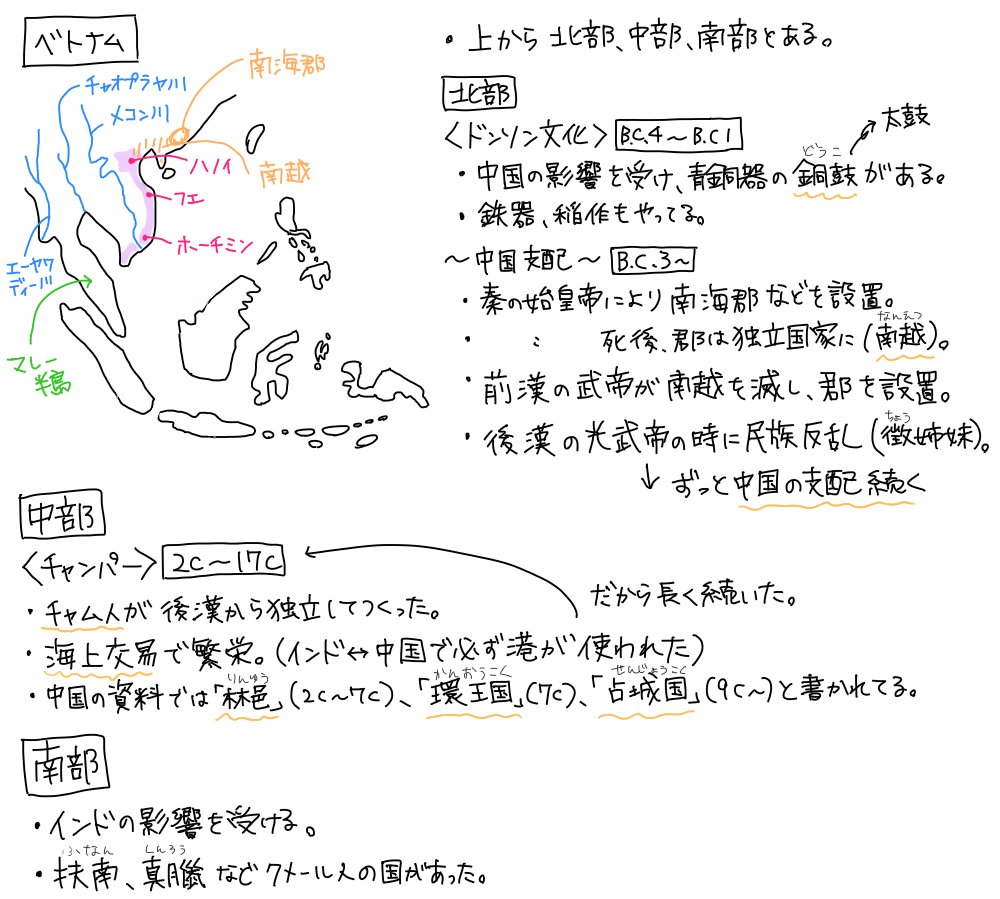 ベトナム
チャオプラヤ川
メコン川
南海郡
ハノイ
南越
フエ
ホーチミン
エーヤワ
ディー川
マレー
半島
・上から北部、中部、南部とある。
北部
<ドンソン文化> B.C.4～B.C1
太鼓
どうこ
・中国の影響を受け、青銅器の銅鼓がある。
・鉄器、稲作もやってる。
～中国支配～ B.C.3～
・秦の始皇帝により南海郡などを設置。
なんえつ
・ 〃 死後、郡は独立国家に(南越)。
・前漢の武帝が南越を滅し、郡を設置。
ちょう
・後漢の光武帝の時に民族反乱(徴姉妹)。
↓ ずっと中国の支配続く
中部
<チャンパー> 2C～17C
だから長く続いた。
・チャム人が後漢から独立してつくった。
・海上交易で繁栄。(インド↔中国で必ず港が使われた)
りんゆう かんおうこく せんじょうこく
・中国の資料では「林邑」(2C～7C)、「環王国」(7C)、「占城国」(9C～)と書かれてる。
南部
・インドの影響を受ける。
ふなん しんろう
・扶南、真臘などクメール人の国があった。